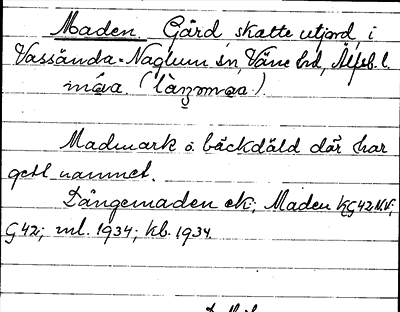 Maden. Gård, skatte utjord, i
Vassända-Naglum sn, Väne hd, Älfsb. l.
Madmark o bäckdäld där har
gett namnet.
Dångemaden ek; Maden
G42; ml. 1934; kb. 1934.